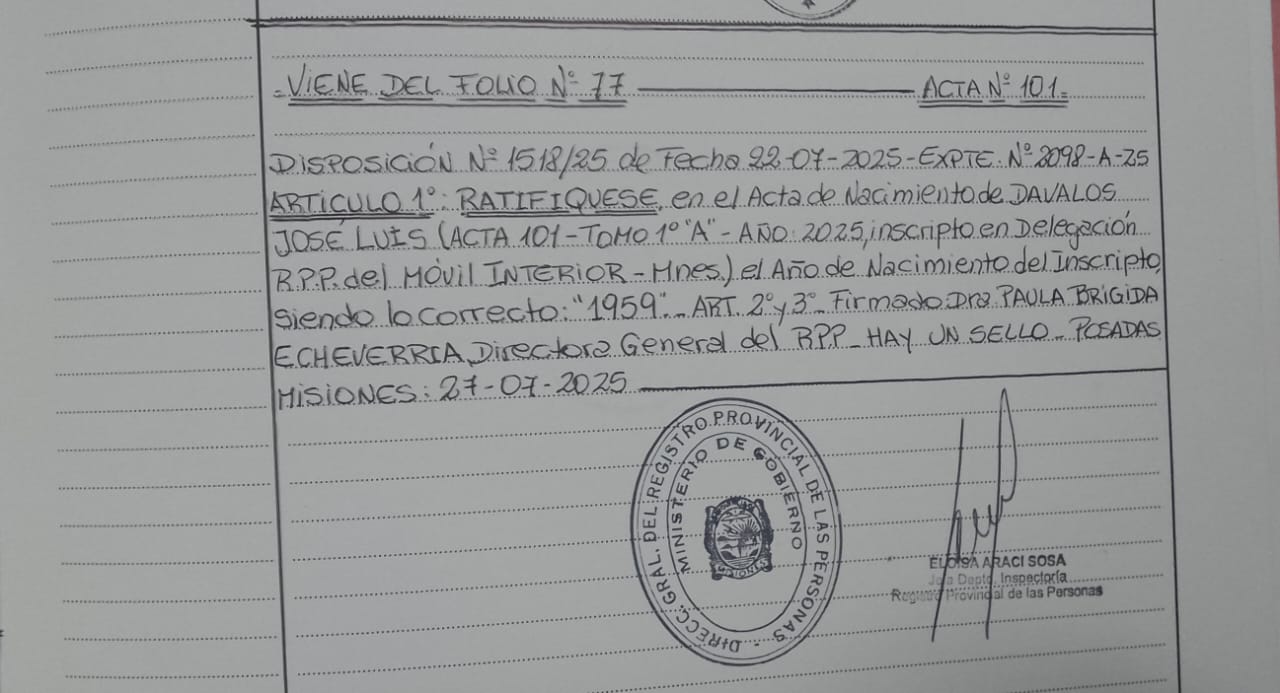 - VIENE DEL FOLIO Nº 77 ACTA Nº 101.-
DISPOSICIÓN Nº 1518/25 de Fecha 22-07-2025-EXPTE. Nº 2098-A-25
ARTÍCULO 1º: RATIFIQUESE, en el Acta de Nacimiento de DAVALOS
JOSÉ LUIS (ACTA 101-TOMO 1º "A"- AÑO: 2025, inscripto en Delegación
R.P.P. del MÓVIL INTERIOR - Mnes.) el Año de Nacimiento del Inscripto,
siendo lo correcto: "1959".- ART. 2º y 3º. Firmado Dra. PAULA BRIGIDA
ECHEVERRIA, Directora General del RPP - HAY UN SELLO - POSADAS
MISIONES: 27-07-2025
DIRECC. GRAL. DEL REGISTRO PROVINCIAL DE LAS PERSONAS -
MINISTERIO DE GOBIERNO
MISIONES
ELOISA ARACI SOSA
Jefa Depto. Inspectoría
Registro Provincial de las Personas